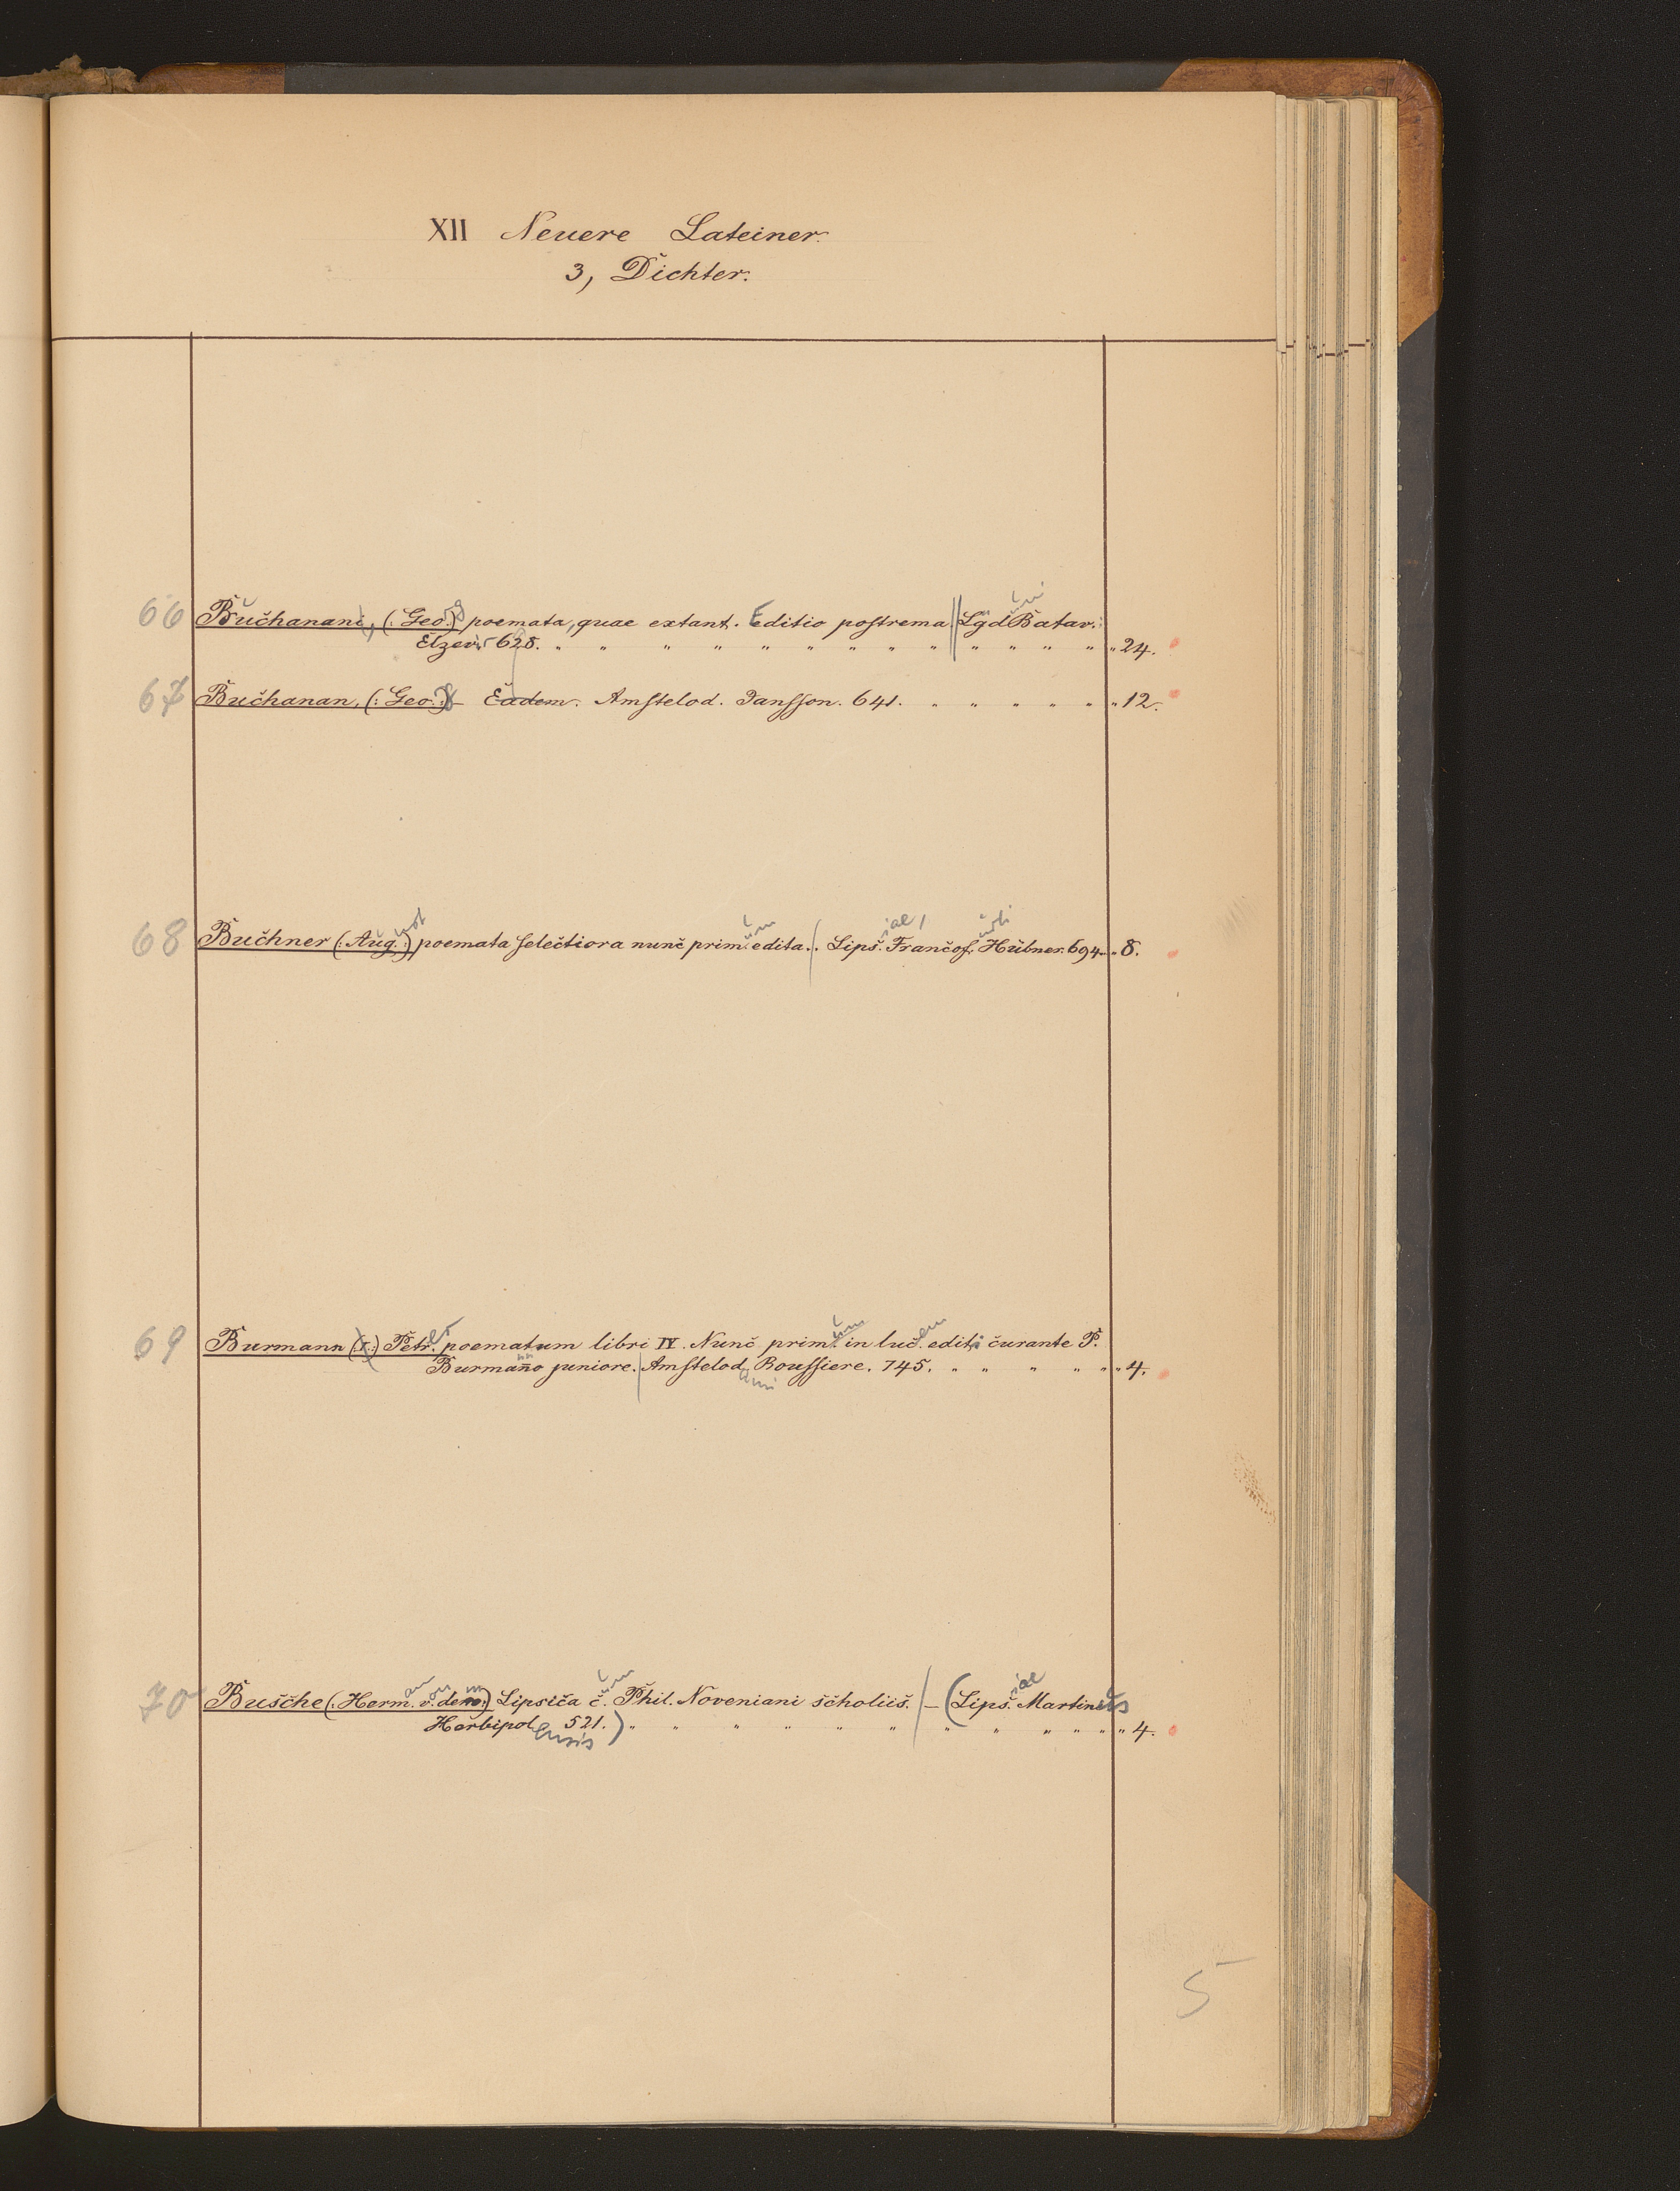 XII Neuere Lateiner.
3, Dichter.
66 Buchanani, (: Geo.:) poemata, quae extant. Editio postrema Lgd Batav.
Elzevir 628. " " " " " " " " " " " " " " 24.
67 Buchanan, (: Geo.:) Eadem. Amstelod. Jansson. 641. " " " " " " 12.
68 Buchner (: Aug.:) poemata selectiora nunc prim. edita. Lips. Francof. Hübner. 694. " 8.
69 Burmann (:) Petr. poematum libri IV. Nunc prim. in luc. edit. curante P.
Burmanno juniore. Amstelod. Roussiere. 745. " " " " " " 4.
70 Busche (: Herm. v. dem:) Lipsica c. Phil. Noveniani scholiis. – (Lips. Martinus
Herbipolensis 521.) " " " " " " " " " " " " 4.
5